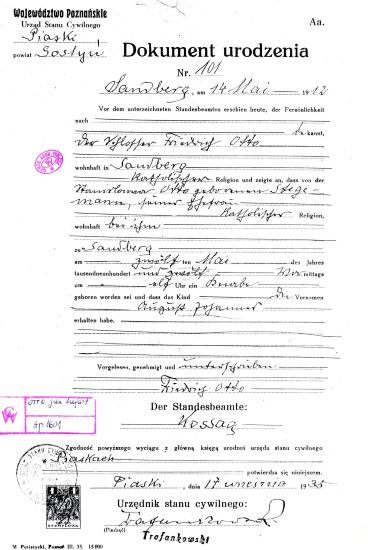 Województwo Poznańskie
Urząd Stanu Cywilnego
Piaski
powiat Gostyń
Aa.
Dokument urodzenia
Nr. 101
Sandberg, am 14 Mai 1912
Vor dem unterzeichneten Standesbeamten erschien heute, der Persönlichkeit
nach bekannt,
der Schlosser Friedrich Otto
wohnhaft in Sandberg
Katholischer Religion und zeigte an, dass von der
Stanislawa Otto geborenen Stege-
mann, seiner Ehefrau
Katholischer Religion,
wohnhaft bei ihm
zu Sandberg
am zwölf ten Mai des Jahres
tausendneunhundert und zwölf Vormittags
um elf Uhr ein Knabe
geboren worden sei und dass das Kind die Vornamen
August Johannes
erhalten habe.
Vorgelesen, genehmigt und unterschrieben
Friedrich Otto
Der Standesbeamte:
Kossag
Zgodność powyższego wyciągu z główną księgą urodzeń urzędu stanu cywilnego
Piaskach
potwierdza się niniejszem.
Piaski, dnia 17 września 1935
Urzędnik stanu cywilnego:
(Pieczęć)
Trafankowski